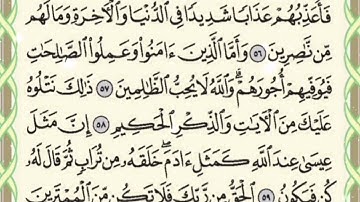 فَأُعَذِّبُهُمْ عَذَابًا شَدِيدًا فِي ٱلدُّنْيَا وَٱلْأَخِرَةِ وَمَا لَهُم
مِّن نَّٰصِرِينَ ٥٦ وَأَمَّا ٱلَّذِينَ ءَامَنُوا۟ وَعَمِلُوا۟ ٱلصَّٰلِحَٰتِ
فَيُوَفِّيهِمْ أُجُورَهُمْ ۗ وَٱللَّهُ لَا يُحِبُّ ٱلظَّٰلِمِينَ ٥٧ ذَٰلِكَ نَتْلُوهُ
عَلَيْكَ مِنَ ٱلْأَيَٰتِ وَٱلذِّكْرِ ٱلْحَكِيمِ ٥٨ إِنَّ مَثَلَ
عِيسَىٰ عِندَ ٱللَّهِ كَمَثَلِ ءَادَمَ ۖ خَلَقَهُۥ مِن تُرَابٍ ثُمَّ قَالَ لَهُۥ
كُن فَيَكُونُ ٥٩ ٱلْحَقُّ مِن رَّبِّكَ فَلَا تَكُن مِّنَ ٱلْمُمْتَرِينَ